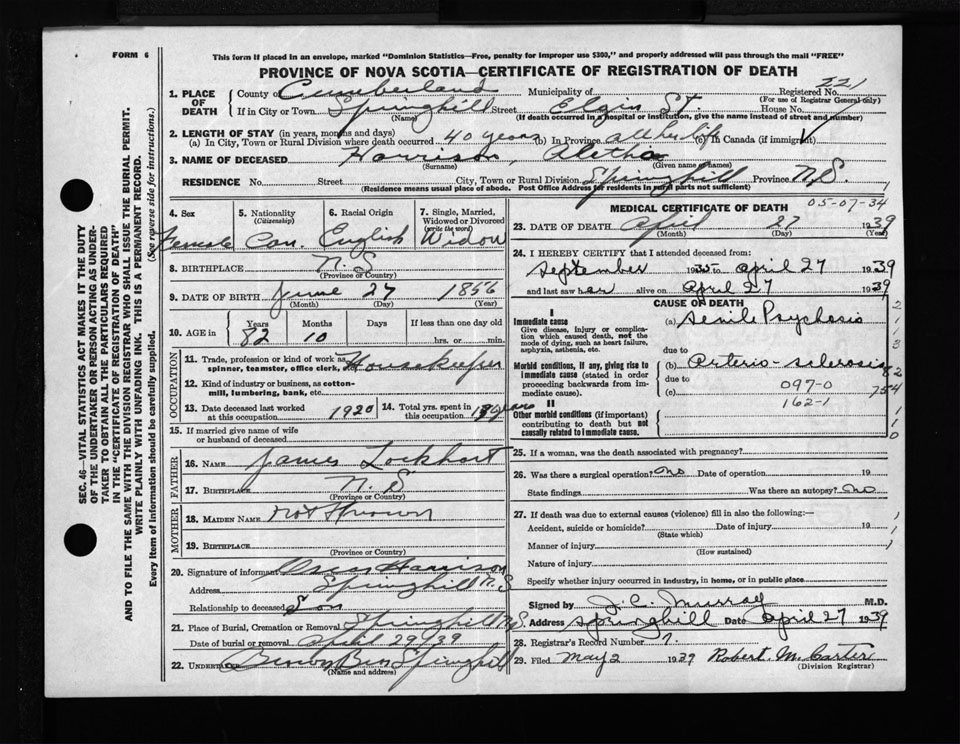 FORM 6
This form if placed in an envelope, marked "Dominion Statistics—Free, penalty for improper use $300," and properly addressed will pass through the mail "FREE"
PROVINCE OF NOVA SCOTIA—CERTIFICATE OF REGISTRATION OF DEATH
SEC. 46—VITAL STATISTICS ACT MAKES IT THE DUTY
OF THE UNDERTAKER OR PERSON ACTING AS UNDER-
TAKER TO OBTAIN ALL THE PARTICULARS REQUIRED
IN THE "CERTIFICATE OF REGISTRATION OF DEATH"
AND TO FILE THE SAME WITH THE DIVISION REGISTRAR WHO SHALL ISSUE THE BURIAL PERMIT.
WRITE PLAINLY WITH UNFADING INK. THIS IS A PERMANENT RECORD.
Every item of information should be carefully supplied. (See reverse side for instructions.)
1. PLACE OF DEATH
County of Cumberland Municipality of Registered No. 221
(For use of Registrar General only)
If in City or Town Springhill Street Elgin St. House No.
(Name) (If death occurred in a hospital or institution, give the name instead of street and number)
2. LENGTH OF STAY (in years, months and days)
(a) In City, Town or Rural Division where death occurred 40 years (b) In Province all her life (c) In Canada (if immigrant)
3. NAME OF DECEASED Harrison, Aletha
(Surname) (Given names)
RESIDENCE No. Street City, Town or Rural Division Springhill Province N.S.
(Residence means usual place of abode. Post Office Address for residents in rural parts not sufficient)
4. Sex Female
5. Nationality (Citizenship) Can.
6. Racial Origin English
7. Single, Married, Widowed or Divorced (write the word) Widow
8. BIRTHPLACE N.S
(Province or Country)
9. DATE OF BIRTH June 27 1856
(Month) (Day) (Year)
10. AGE in Years Months Days If less than one day
82 10 hrs. or min.
OCCUPATION
11. Trade, profession or kind of work as spinner, teamster, office clerk, etc. Housekeeper
12. Kind of industry or business, as cotton-mill, lumbering, bank, etc.
13. Date deceased last worked at this occupation 1920
14. Total yrs. spent in this occupation years
15. If married give name of wife or husband of deceased
FATHER
16. NAME James Lockhart
17. BIRTHPLACE N.S
(Province or Country)
MOTHER
18. MAIDEN NAME not Known
19. BIRTHPLACE
(Province or Country)
20. Signature of informant Oscar Harrison
Address Springhill N.S
Relationship to deceased Son
21. Place of Burial, Cremation or Removal Springhill N.S.
Date of burial or removal April 29/39
22. UNDERTAKER Springhill
(Name and address)
MEDICAL CERTIFICATE OF DEATH
05-07-34
23. DATE OF DEATH April 27 1939
(Month) (Day) (Year)
24. I HEREBY CERTIFY that I attended deceased from:
September 1935 to April 27 1939
and last saw her alive on April 27 1939
CAUSE OF DEATH
I
Immediate cause (a) Senile Psychosis
Give disease, injury or complication which caused death, not the mode of dying, such as heart failure, asphyxia, asthenia, etc.
due to
Morbid conditions, if any, giving rise to immediate cause (stated in order proceeding backwards from immediate cause) (b) Arterio-sclerosis
due to
(c)
097-0
162-1
II
Other morbid conditions (if important) contributing to death but not causally related to immediate cause.
25. If a woman, was the death associated with pregnancy?
26. Was there a surgical operation? no Date of operation 19
State findings Was there an autopsy? no
27. If death was due to external causes (violence) fill in also the following:—
Accident, suicide or homicide? Date of injury 19
(State which)
Manner of injury
(How sustained)
Nature of injury
Specify whether injury occurred in industry, in home, or in public place
Signed by J. C. Murray M.D.
Address Springhill Date April 27 1939
28. Registrar's Record Number 7.
29. Filed May 2 1939 Robert M. Carter
(Division Registrar)